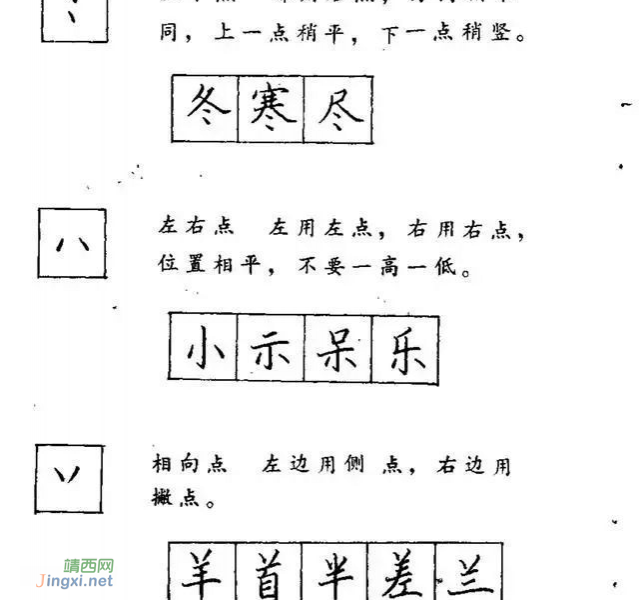 同，上一点稍平，下一点稍竖。
冬寒尽
左右点 左用左点，右用右点，
位置相平，不要一高一低。
小示呆乐
相向点 左边用侧点，右边用
撇点。
羊首半差兰
靖西网
Jingxi.net